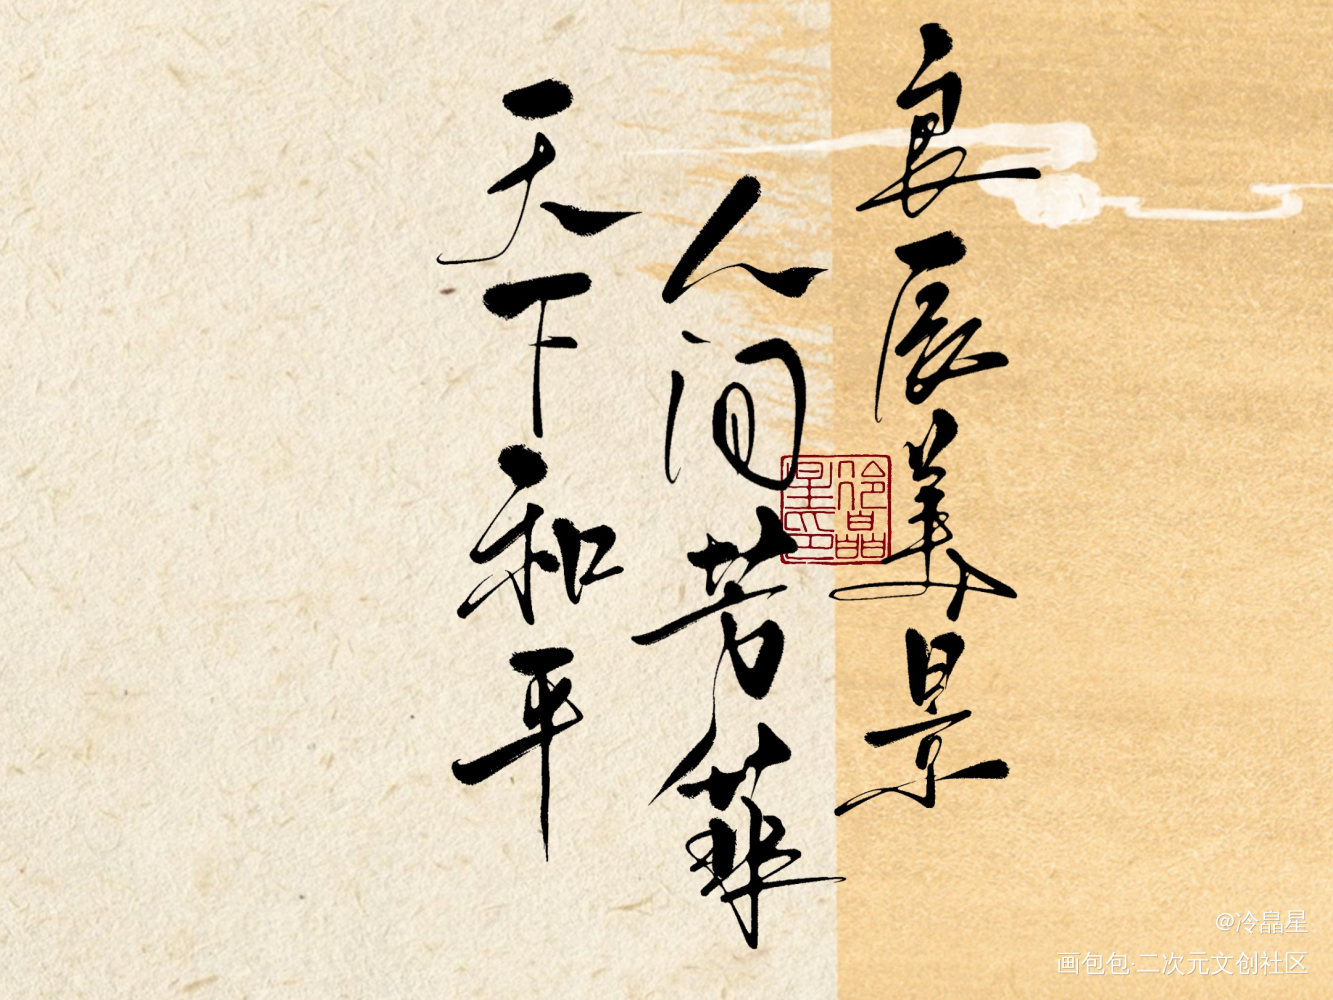 良辰美景
人间芳菲
天下和平
冷晶星印
@冷晶星
画包包·二次元文创社区